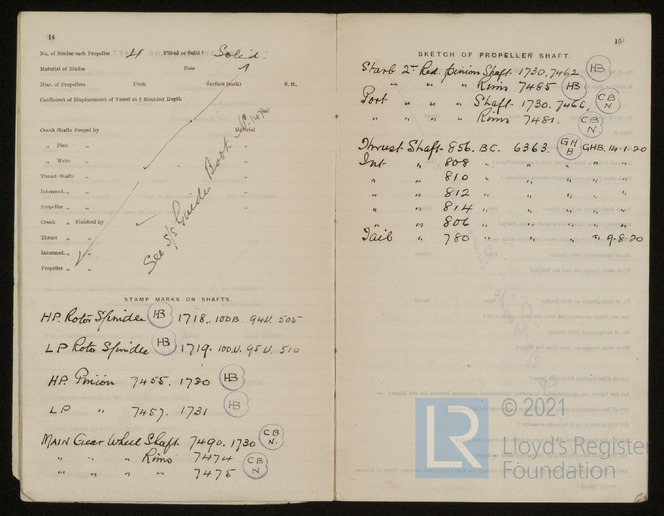 14
No. of Blades each Propeller 4 Fitted or Solid? Solid.
Material of Blades Boss
Diar. of Propellers Pitch Surface (each) S. ft.
Coefficient of Displacement of Vessel at ¾ Moulded Depth
Crank Shafts Forged by Material
„ Pins „ „
„ Webs „ „
Thrust Shafts „ „
Intermed. „ „ „
Propeller „ „ „
Crank „ Finished by „
Thrust „ „ „
Intermed. „ „ „
Propeller „ „ „
See S/S Guide Book
STAMP MARKS ON SHAFTS.
HP. Rotor Spindle HB 1718. 100B. 94U. 505
LP Rotor Spindle HB 1719. 100U. 95U. 510
HP. Pinion 7455. 1730 HB
LP „ 7457. 1731 HB
MAIN Gear Wheel Shaft. 7490. 1730 CB N.
„ „ „ Rims 7474 CB N
„ „ „ „ 7475
15
SKETCH OF PROPELLER SHAFT.
Starb 2nd Red. Pinion Shaft. 1730. 7462 HB
„ „ „ „ Rims 7485 HB
Port „ „ „ Shaft. 1730. 7466. CB N
„ „ „ „ Rims 7481. CB N
Thrust Shaft. 856. BC. 6363. GH B GHB. 14-1-20
Int „ 808 „ „ „ „
„ „ 810 „ „ „ „
„ „ 812 „ „ „ „
„ „ 814 „ „ „ „
„ „ 806 „ „ „ „
Tail „ 780 „ „ „ 9-8-20
LR
© 2021
Lloyd's Register
Foundation